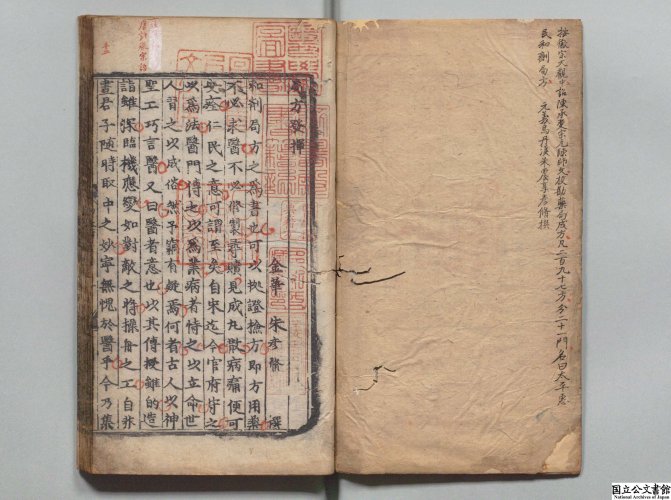 按徽宗大觀中詔陳承裴宗元陳師文校勘藥局成方凡二百九十七方分二十一門名曰太平惠
民和劑局方　元義烏丹溪朱震亨彥脩撰
局方發揮
金華　朱彥脩　撰
和劑局方之爲書也可以㨿證檢方即方用藥
不必求醫不必脩製尋贖見成丸散病痛便可
安痊仁民之意可謂至矣自宋迄今官府守之
以爲法醫門傳之以爲業病者恃之以立命世
人習之以成俗然予竊有疑焉何者古人以神
聖工巧言醫又曰醫者意也以其傳授雖的造
詣雖深臨機應變如對敵之將操舟之工自非
盡君子隨時取中之妙寧無愧於醫乎今乃集
国立公文書館
National Archives of Japan